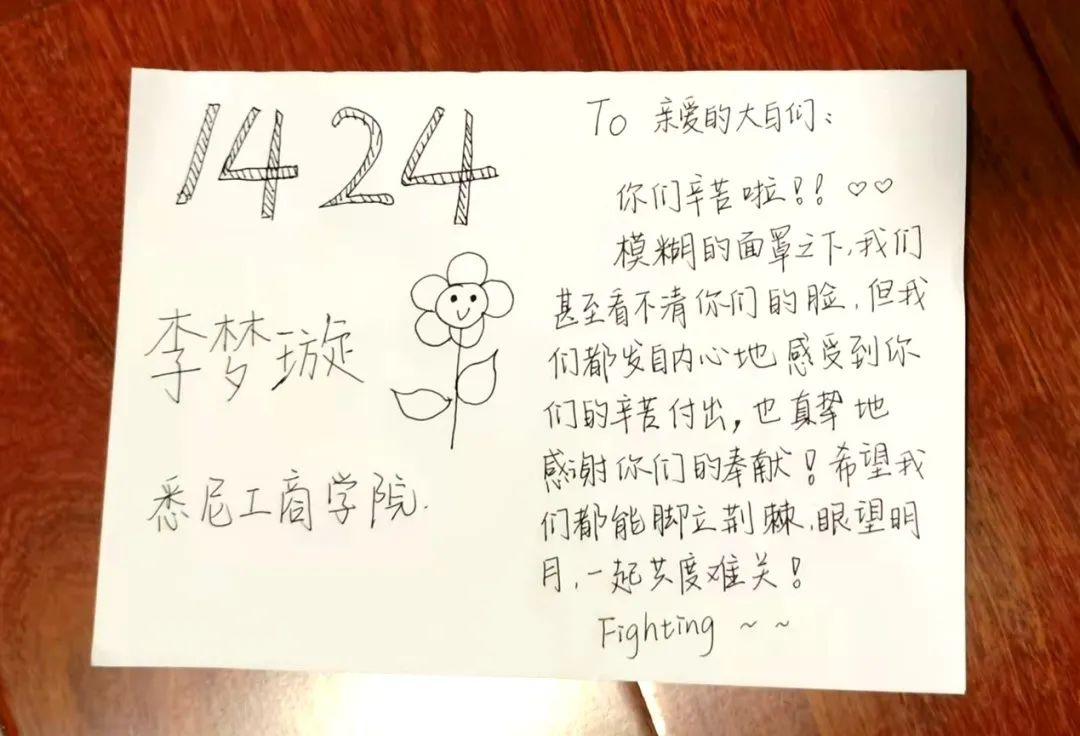 1424
李梦璇
悉尼工商学院.
To 亲爱的大白们：
你们辛苦啦！！♡♡
模糊的面罩之下，我们
甚至看不清你们的脸，但我
们都发自内心地感受到你
们的辛苦付出，也真挚地
感谢你们的奉献！希望我
们都能脚立荆棘，眼望明
月，一起共度难关！
Fighting ~ ~